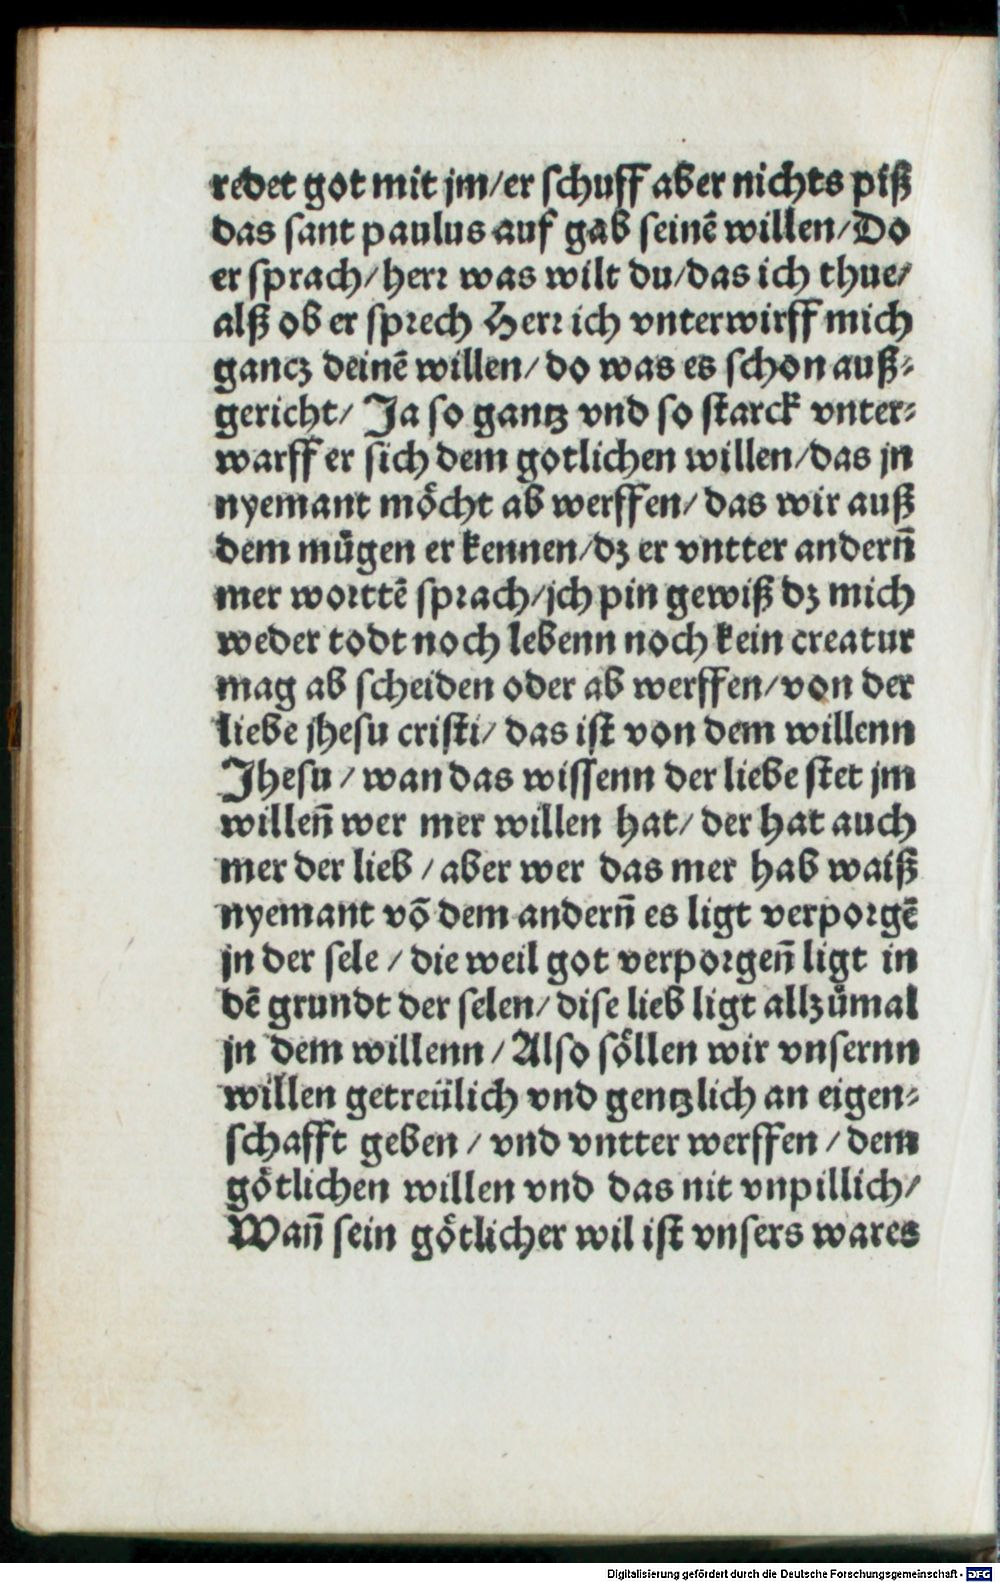 redet got mit jm/er schuff aber nichts piß
das sant paulus auf gab seinē willen/Do
er sprach/herr was wilt du/das ich thue/
alß ob er sprech Herr ich vnterwirff mich
gancz deinē willen/do was es schon auß-
gericht/ Ja so gantz vnd so starck vnter-
warff er sich dem gotlichen willen/das jn
nyemant möcht ab werffen/das wir auß
dem mügen er kennen/dz er vntter anderñ
mer worttē sprach/jch pin gewiß dz mich
weder todt noch lebenn noch kein creatur
mag ab scheiden oder ab werffen/von der
liebe jhesu cristi/das ist von dem willenn
Jhesu/wan das wissenn der liebe stet jm
willeñ wer mer willen hat/der hat auch
mer der lieb/aber wer das mer hab waiß
nyemant võ dem anderñ es ligt verporgē
jn der sele/die weil got verporgeñ ligt in
dē grundt der selen/dise lieb ligt allzůmal
jn dem willenn/Also söllen wir vnsernn
willen getreülich vnd gentzlich an eigen-
schafft geben/vnd vntter werffen/dem
götlichen willen vnd das nit vnpillich/
Wañ sein götlicher wil ist vnsers wares
Digitalisierung gefördert durch die Deutsche Forschungsgemeinschaft - DFG